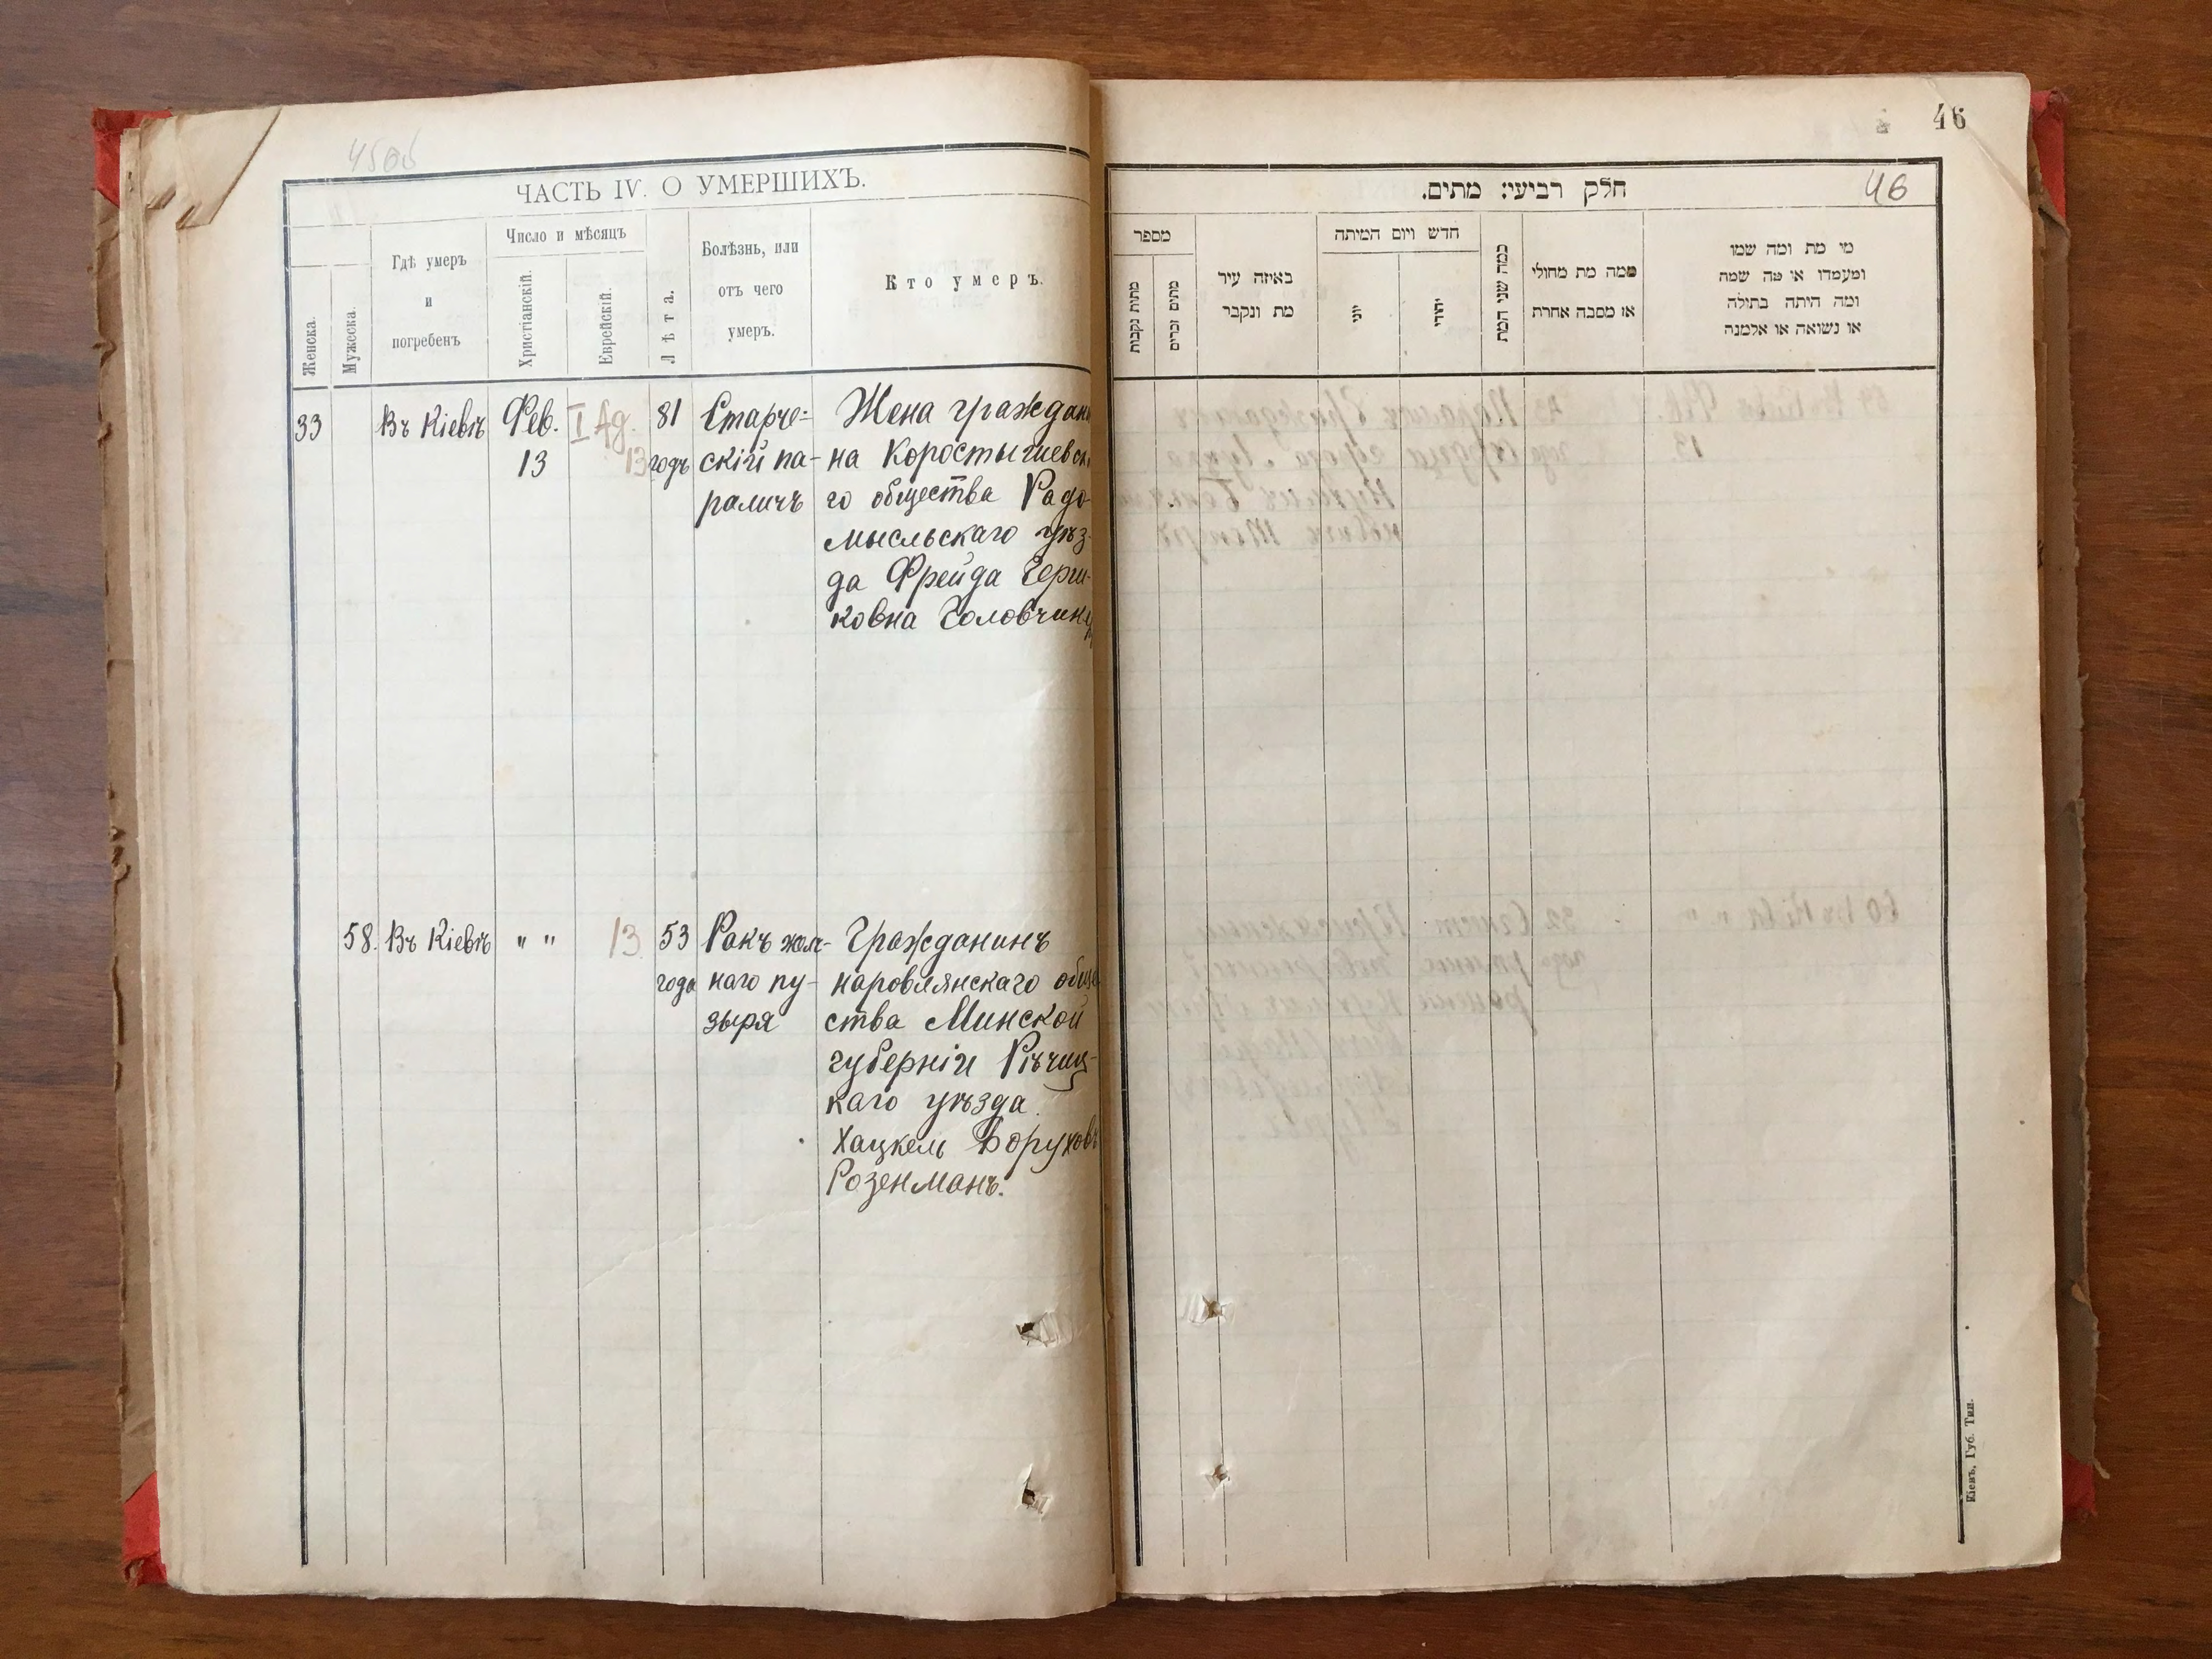 45об
ЧАСТЬ IV. О УМЕРШИХЪ.
Женска.
Мужеска.
Гдѣ умеръ
и
погребенъ
Число и мѣсяцъ
Христіанскій.
Еврейскій.
Лѣта.
Болѣзнь, или
отъ чего
умеръ.
Кто умеръ.
33
Въ Кіевѣ
Фев.
13
I Ад.
13
81
годъ
Старче-
скій па-
раличъ
Жена граждани
на Коростышевска
го общества Радо-
мысльскаго уѣз-
да Фрейда Герш-
ковна Головчинер
58.
Въ Кіевѣ
" "
13
53
года
Ракъ жол-
наго пу-
зыря
Гражданинъ
наровлянскаго обще
ства Минской
губерніи Рѣчиц-
каго уѣзда.
Хацкель Боруховъ
Розенманъ.
46
חלק רביעי: מתים.
46
מספר
מתות נקבות
מתים זכרים
באיזה עיר
מת ונקבר
חדש ויום המיתה
יוני
יהודי
כמה שני המת
ממה מת מחולי
או מסבה אחרת
מי מת ומה שמו
ומעמדו או מה שמה
ומה היתה בתולה
או נשואה או אלמנה
Кіевъ, Губ. Тип.